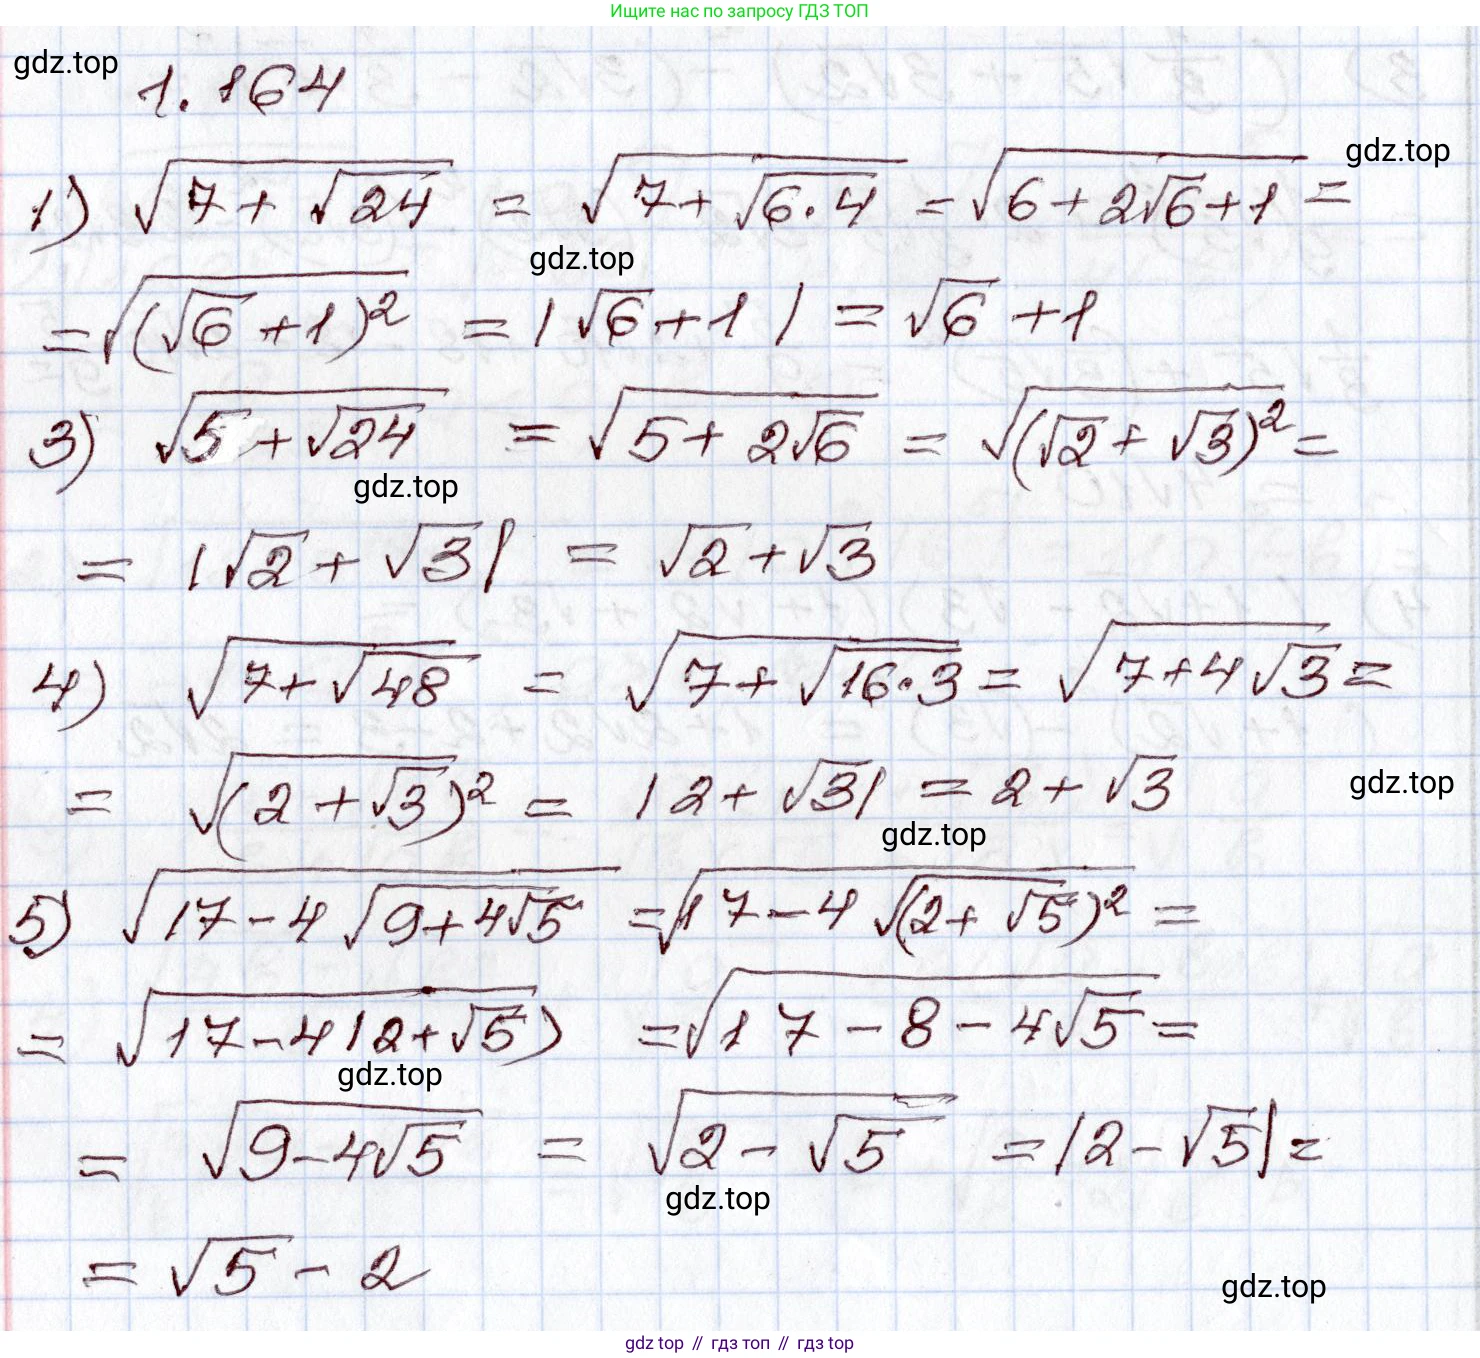 Ищите нас по запросу ГДЗ ТОП
gdz.top
1.164
1) √(7+√24) = √(7+√(6·4)) = √(6+2√6+1) =
gdz.top
gdz.top
=√((√6+1)²) = |√6+1| = √6+1
3) √(5+√24) = √(5+2√6) = √((√2+√3)²) =
gdz.top
= |√2+√3| = √2+√3
4) √(7+√48) = √(7+√(16·3)) = √(7+4√3) =
= √((2+√3)²) = |2+√3| = 2+√3
gdz.top
gdz.top
5) √(17-4√(9+4√5)) = √(17-4√((2+√5)²)) =
= √(17-4(2+√5)) = √(17-8-4√5) =
gdz.top
= √(9-4√5) = √(2-√5) = |2-√5| =
gdz.top
= √5-2
gdz.top
gdz top // гдз топ // gdz top